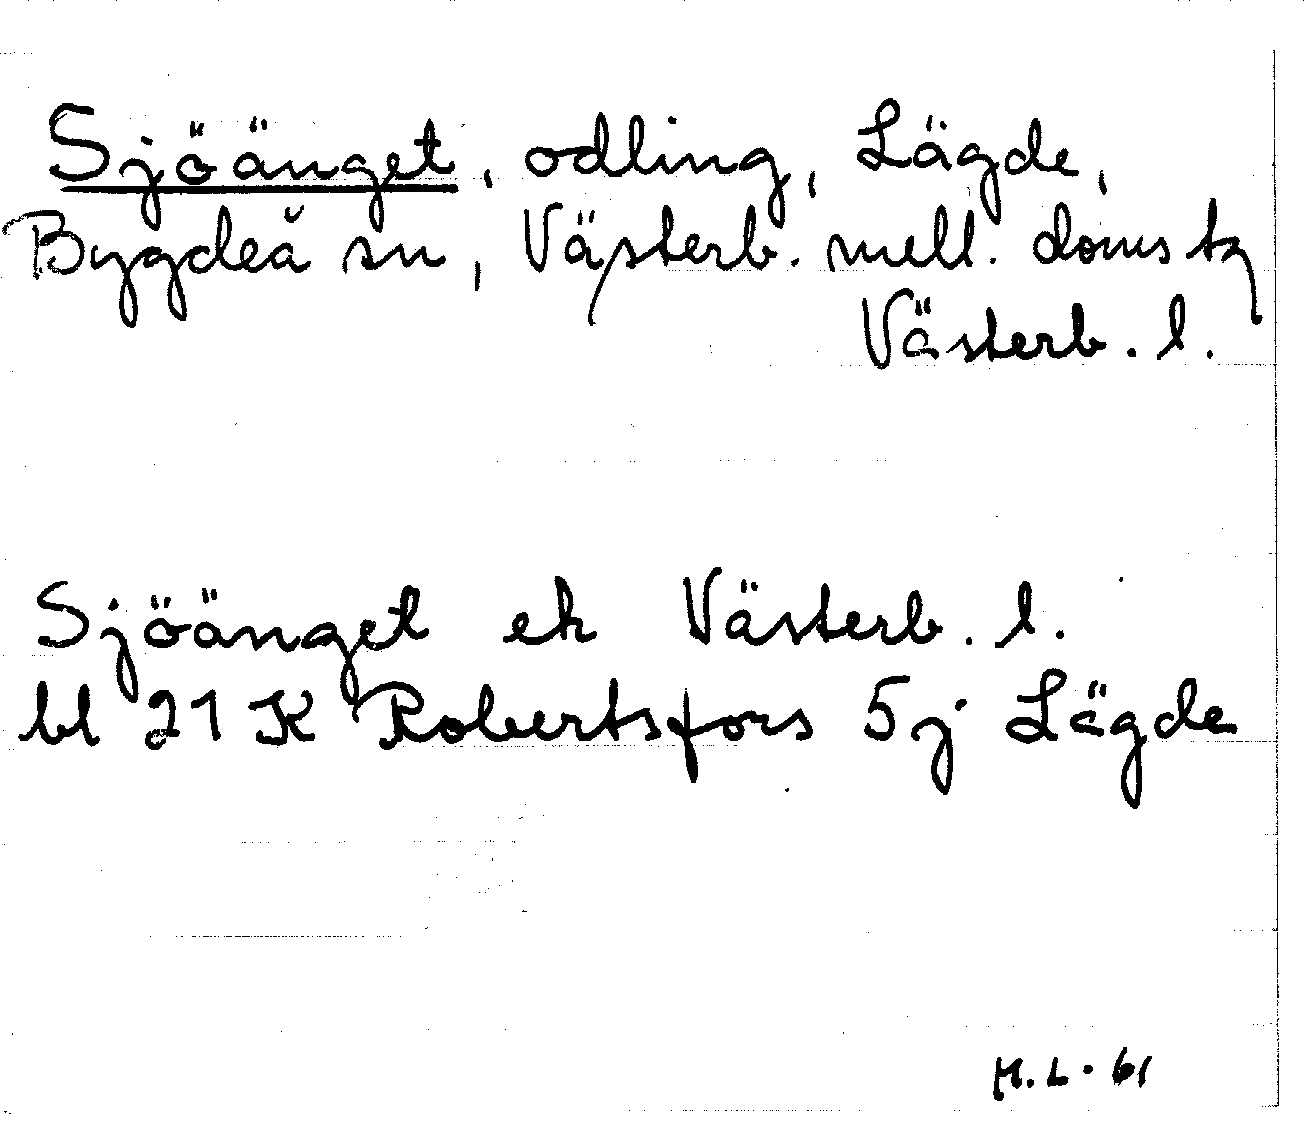 Sjöänget, odling, Lägde,
Bygdeå sn, Västerb. mell. doms tg
Västerb. l.
Sjöänget ek Västerb. l.
bl 21 K Robertsfors 5j Lägde
H. L. 61